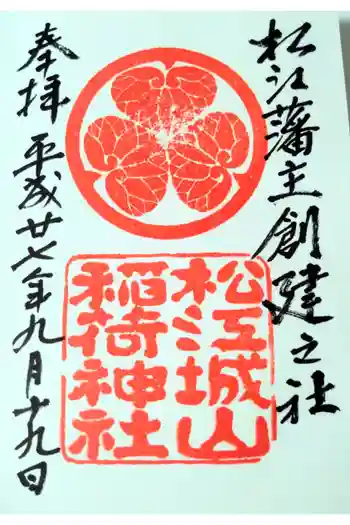 松江藩主創建之社
松江城山
稲荷神社
奉拝 平成廿七年九月十九日